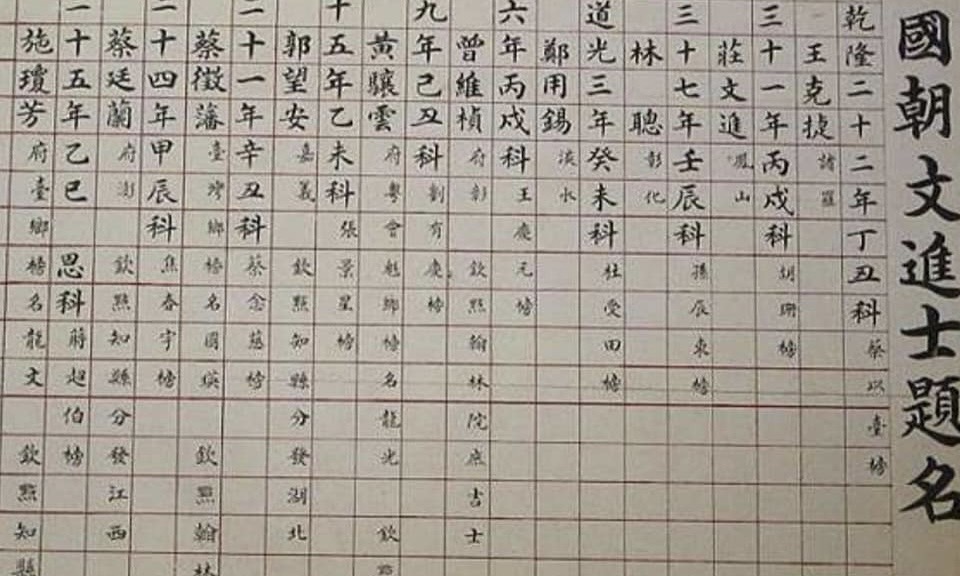 國朝文進士題名
乾隆二十二年丁丑科蔡以臺榜
王克捷諸羅
三十一年丙戌科胡珊榜
莊文進鳳山
三十七年壬辰科孫辰東榜
林聰彰化
道光三年癸未科杜受田榜
鄭用錫淡水
六年丙戌科王慶元榜
曾維楨府彰欽點翰林院庶吉士
九年己丑科劉有慶榜
黃驤雲府粵會魁鄉榜名龍光欽點
十五年乙未科張景星榜
郭望安嘉義欽點知縣分發湖北
二十一年辛丑科蔡念慈榜
蔡徵藩臺灣鄉榜名國瑛欽點翰林
二十四年甲辰科焦春宇榜
蔡廷蘭府澎欽點知縣分發江西
二十五年乙巳恩科蔣超伯榜
施瓊芳府臺鄉榜名龍文欽點知縣